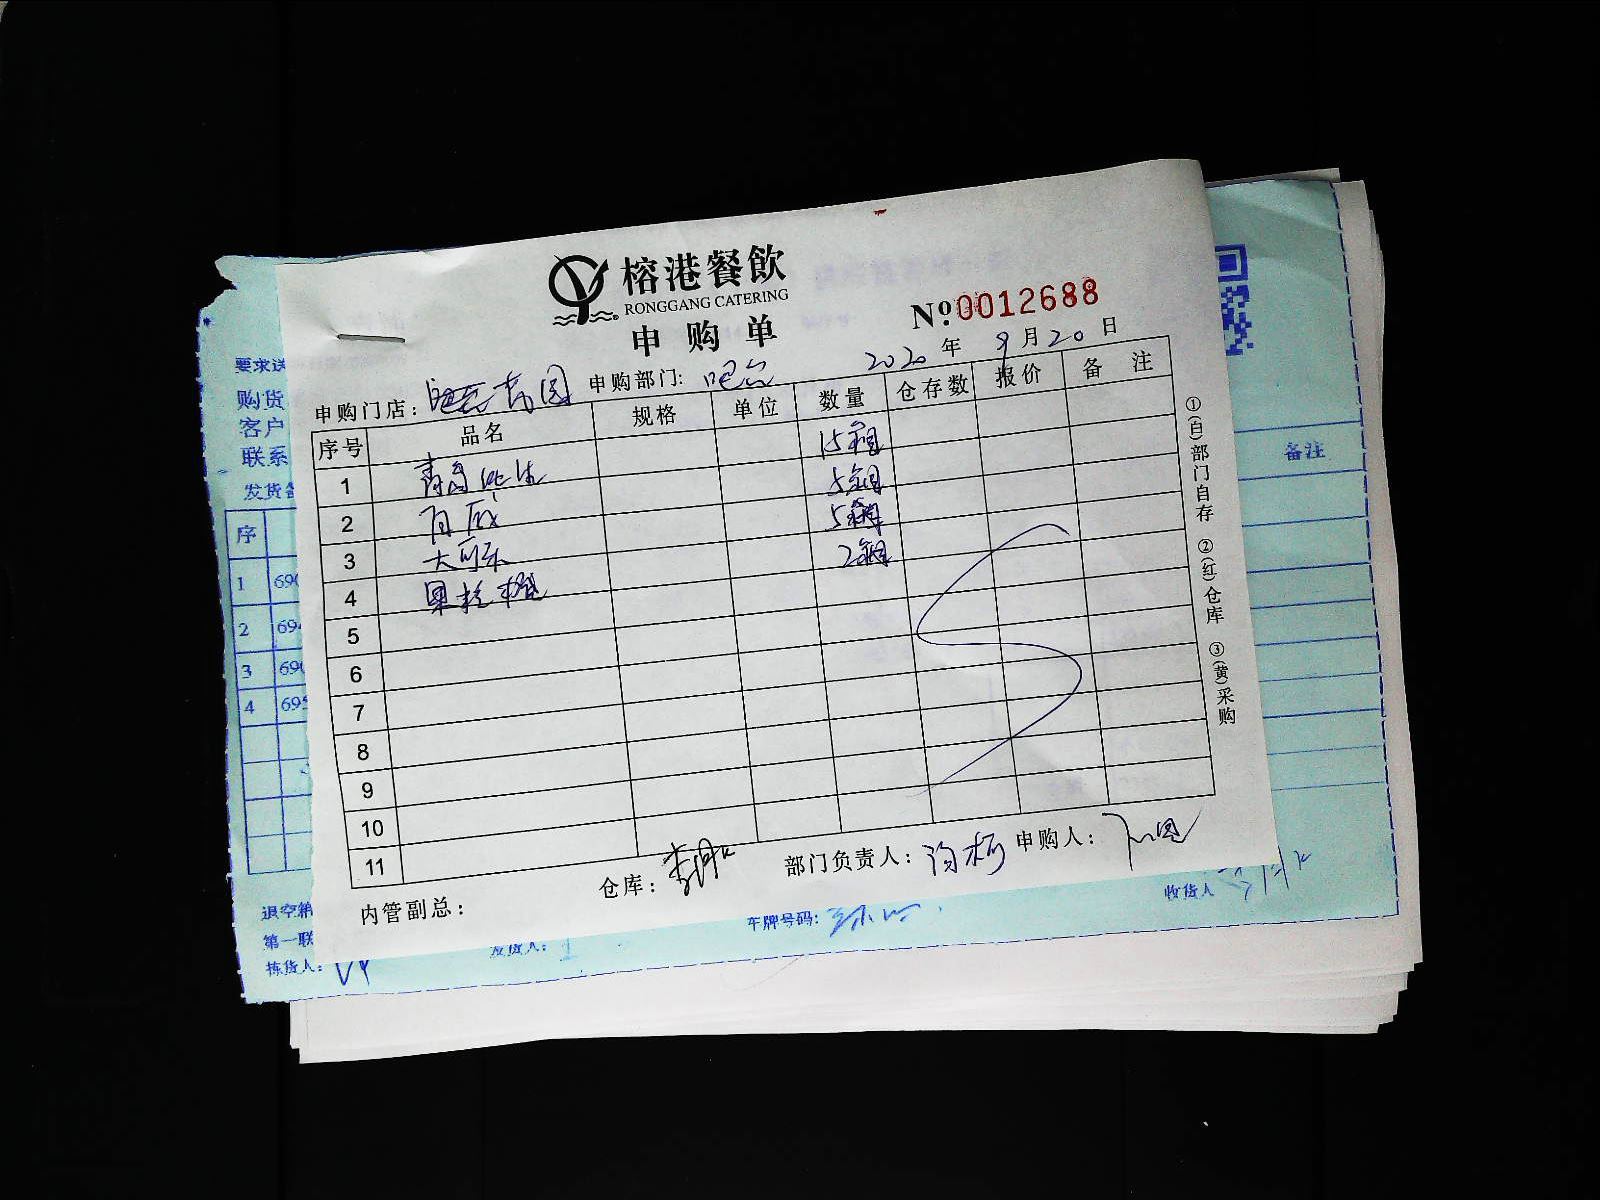 榕港餐飲
RONGGANG CATERING
申购单
№ 0012688
2020年9月20日
申购门店: 申购部门: 吧台
序号 品名 规格 单位 数量 仓存数 报价 备注
1 青岛纯生 15箱
2 百威 5箱
3 大可乐 5箱
4 果粒橙 2箱
5
6
7
8
9
10
11
内管副总: 仓库: 部门负责人: 申购人:
①(白)部门自存 ②(红)仓库 ③(黄)采购
要求送
购货
客户
联系
发货
序
备注
1 690
2 694
3 690
4 695
退空箱
第一联
拣货人:
发货人:
车牌号码:
收货人